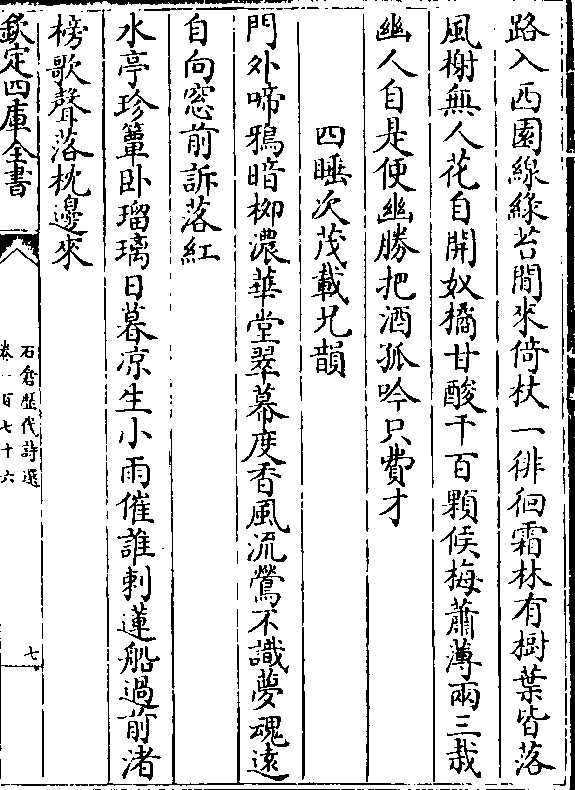 路入西園線緑苔閒來倚杖一徘徊霜林有樹葉皆落
風榭無人花自開奴橘甘酸千百顆候梅蕭薄兩三栽
幽人自是便幽勝把酒孤吟只費才
四睡次茂載兄韻
門外啼鴉暗柳濃華堂翠幕度香風流鶯不識夢魂逺
自向窓前訴落紅
水亭珍簟卧瑠璃日暮凉生小雨催誰剌蓮船過前渚
榜歌聲落枕邊來
欽定四庫全書
石倉歷代詩選
卷一百七十六
七